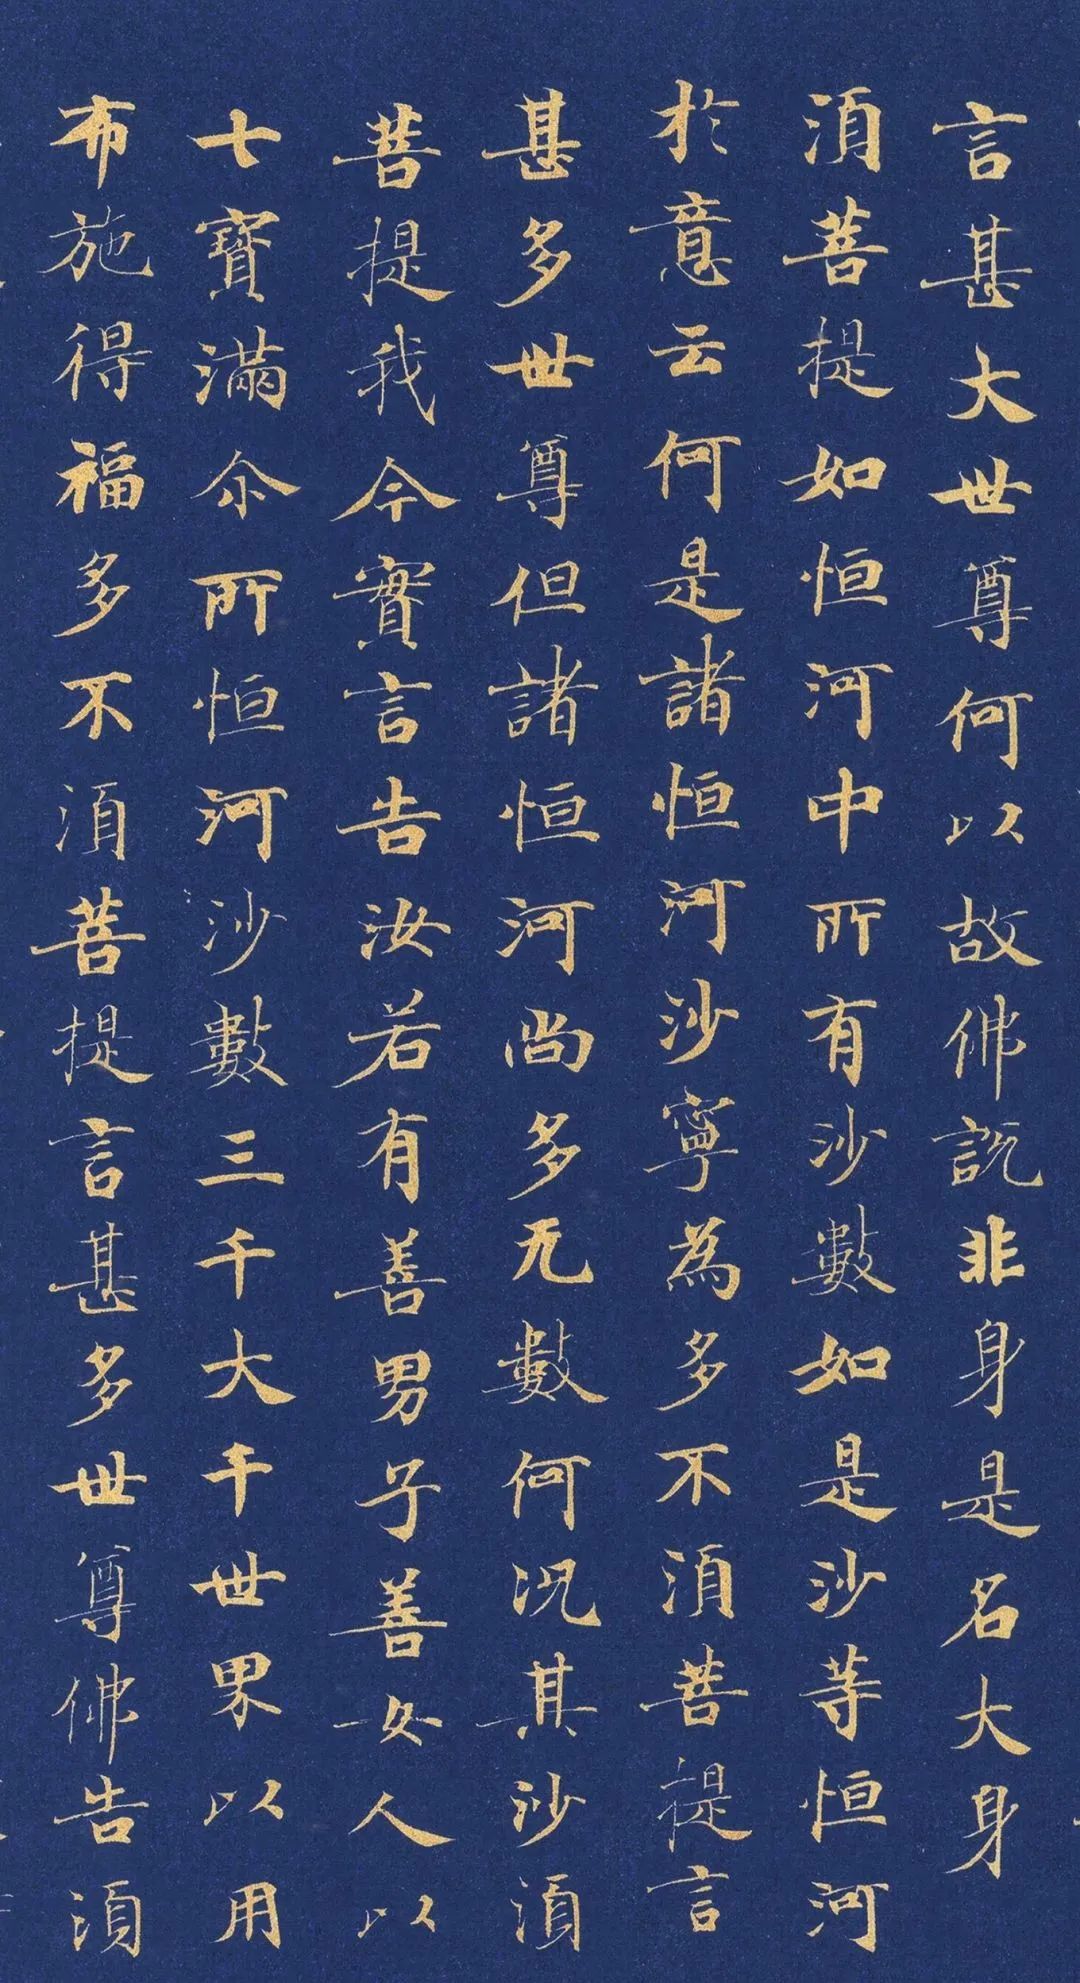 言甚大世尊何以故佛説非身是名大身
須菩提如恒河中所有沙數如是沙等恒河
於意云何是諸恒河沙寧為多不須菩提言
甚多世尊但諸恒河尚多无數何況其沙須
菩提我今實言告汝若有善男子善女人以
七寶滿尒所恒河沙數三千大千世界以用
布施得福多不須菩提言甚多世尊佛告須